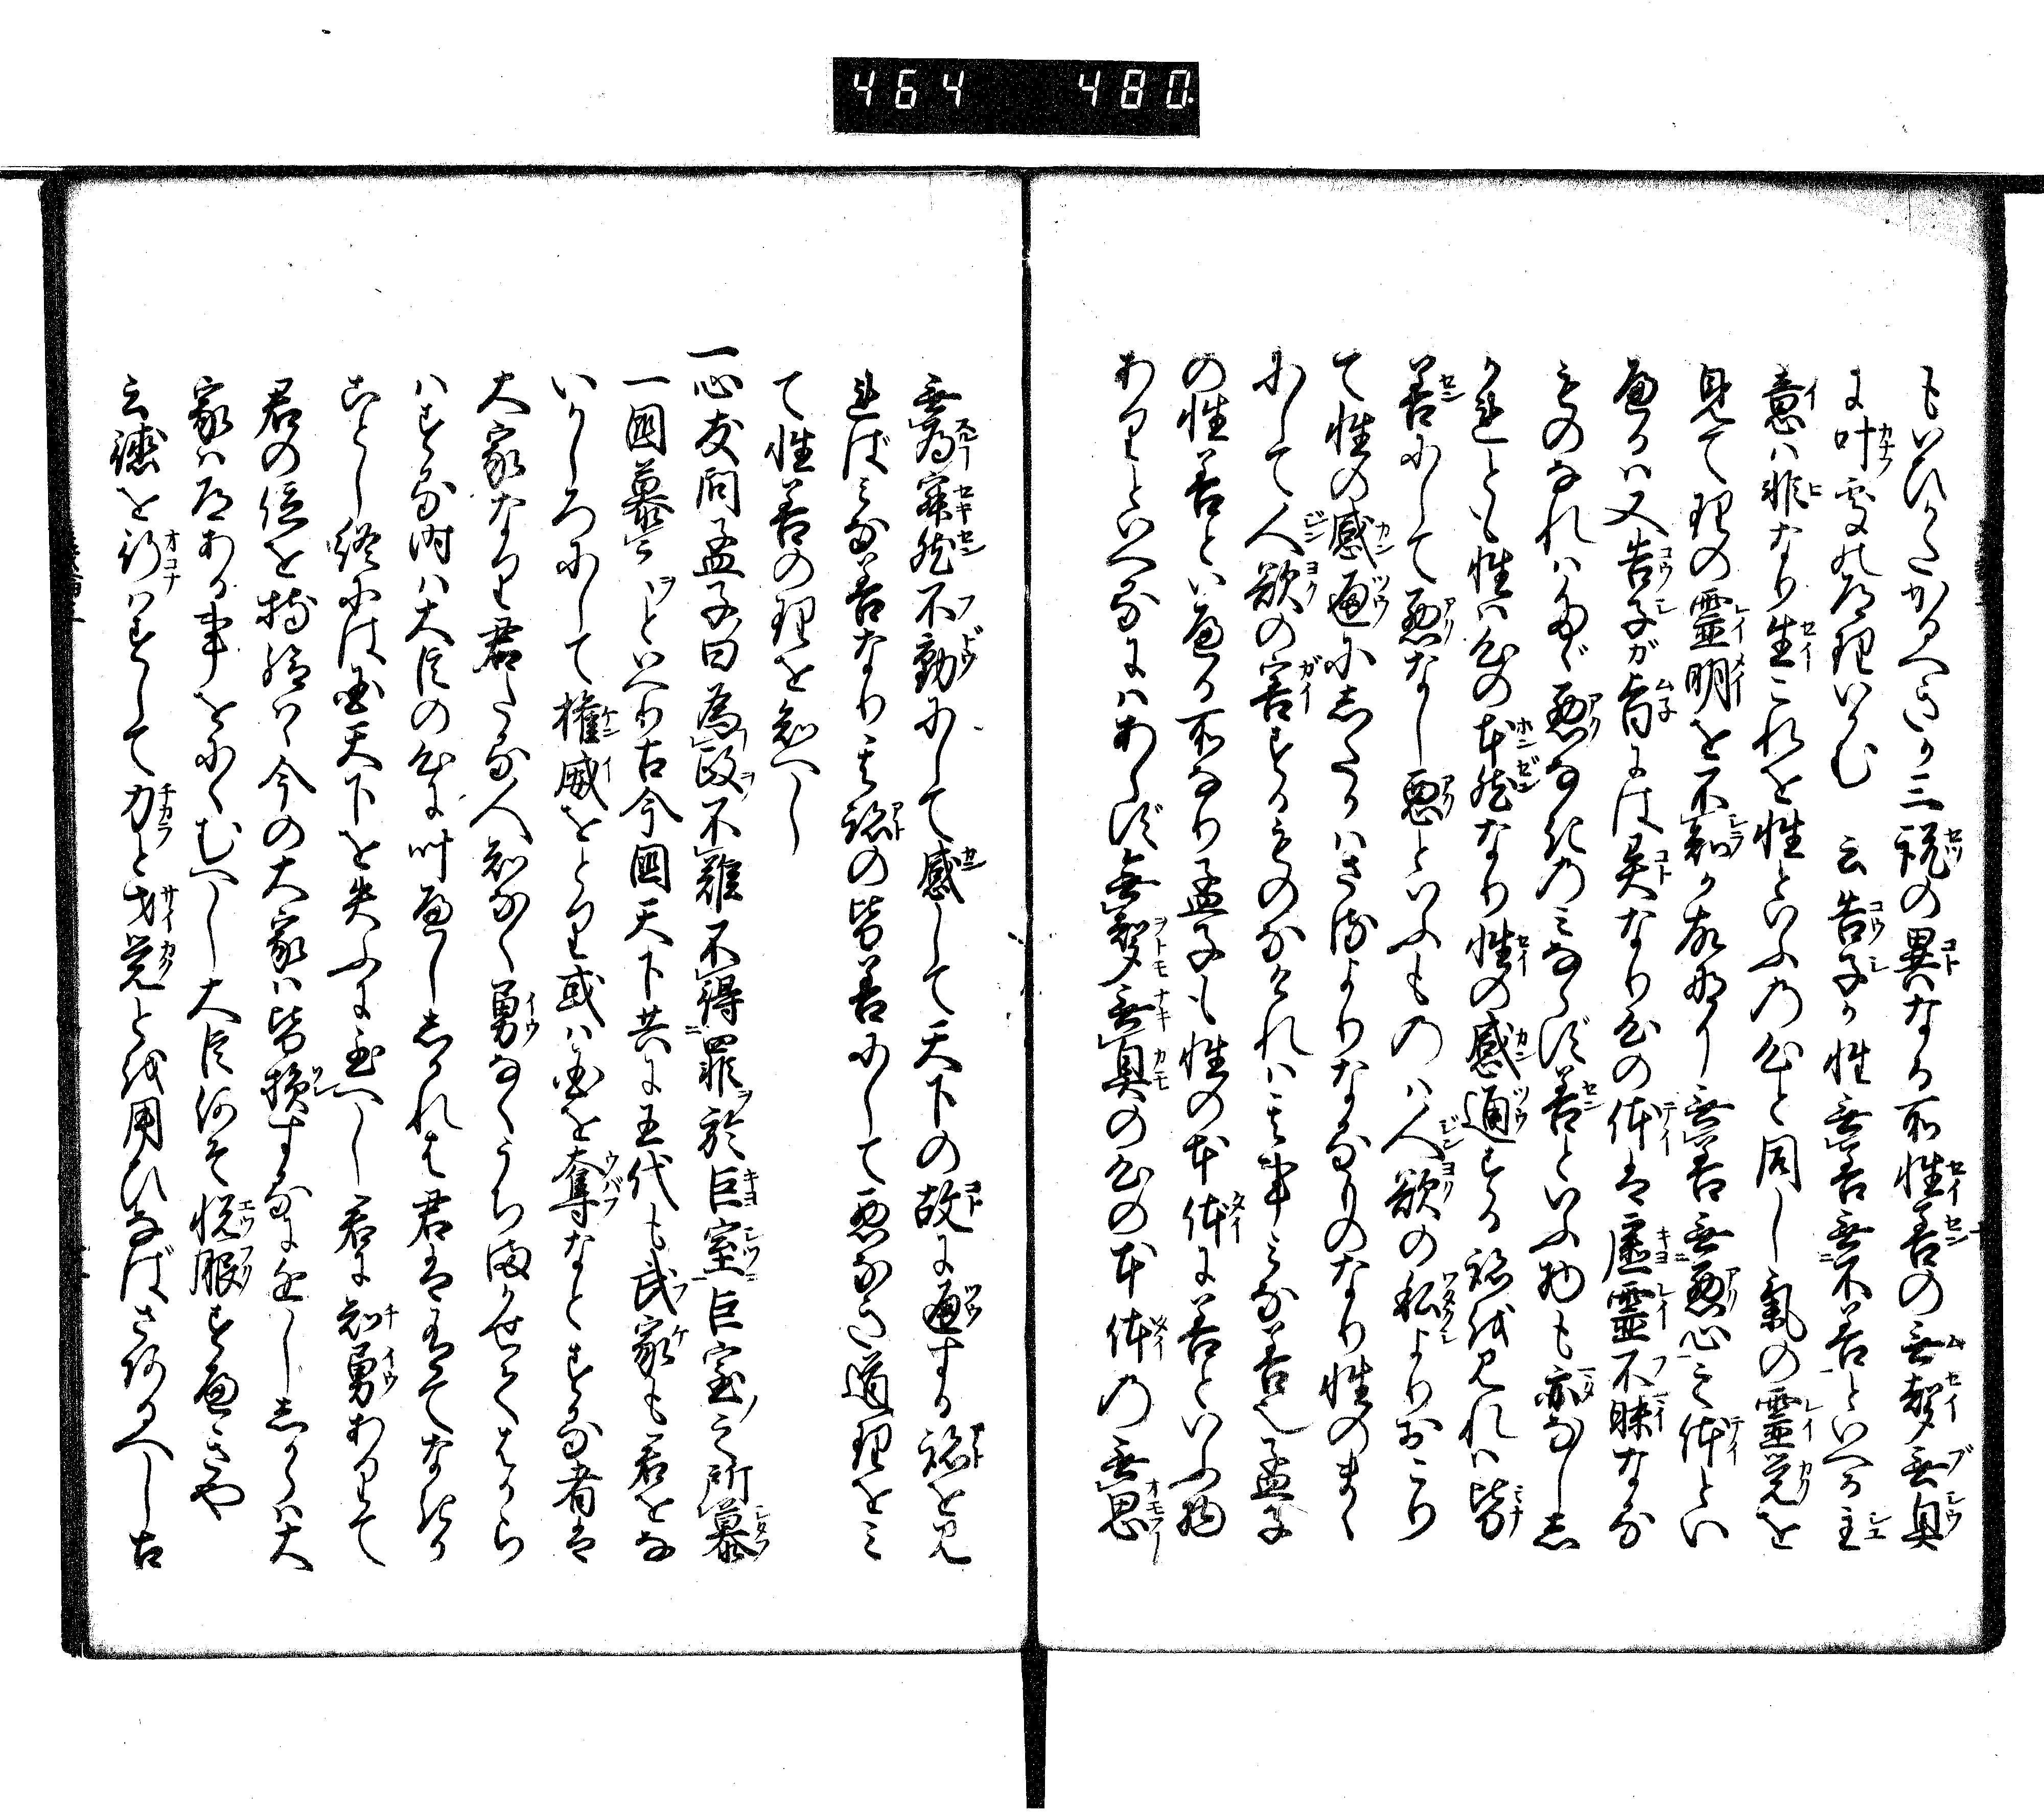 464 480
もいひかたかるへきか三説の異なる所性善の無聲無臭
に叶處の道理いかむ 云告子か性無善無不善といへる主
意ハ非なり生これを性といふの心と同し氣の霊覚を
見て理の霊明を不知か故なり無善無悪心之体とい
へるハ又告子が旨には異なり心の体は虚霊不昧なる
ものなれハたゞ悪なきのミならず善といふ物も亦なし志
かれとも性ハ心の本然なり性の感通する跡を見れハ皆
善にして悪なし悪といふものハ人欲の私よりおこり
て性の感通にしたかハさるよりなるものなり性のまゝ
にして人欲の害するものなけれハ其事ミな善也孟子
の性善といへる所なり孟子も性の本体に善といふ物
ありといへるにハあらず無聲無臭の心の本体の無思
無為寂然不動にして感して天下の故に通する跡を見
ればミな善なり其跡の皆善にして悪なき道理をミ
て性善の理を知へし
一心友問孟子曰為政不難不得罪於巨室巨室之所慕
一國慕之といへり古今國天下共に王代も武家も君をな
いかしろにして権威をとり或ハ國を奪なとする者は
大家なり君たる人知なく勇なくうち任せてはから
ハする時ハ大臣の心に叶へししかれは君はありてなきか
ことし終には國天下を失ふに至へし君に知勇ありて
君の位を持給ハゝ今の大家ハ皆損するに近し志からハ大
家ハ道ある事をにくむへし大臣何そ悦服すへきや
云徳を行ハすして力と才覚とを用ひなばさ有へし古